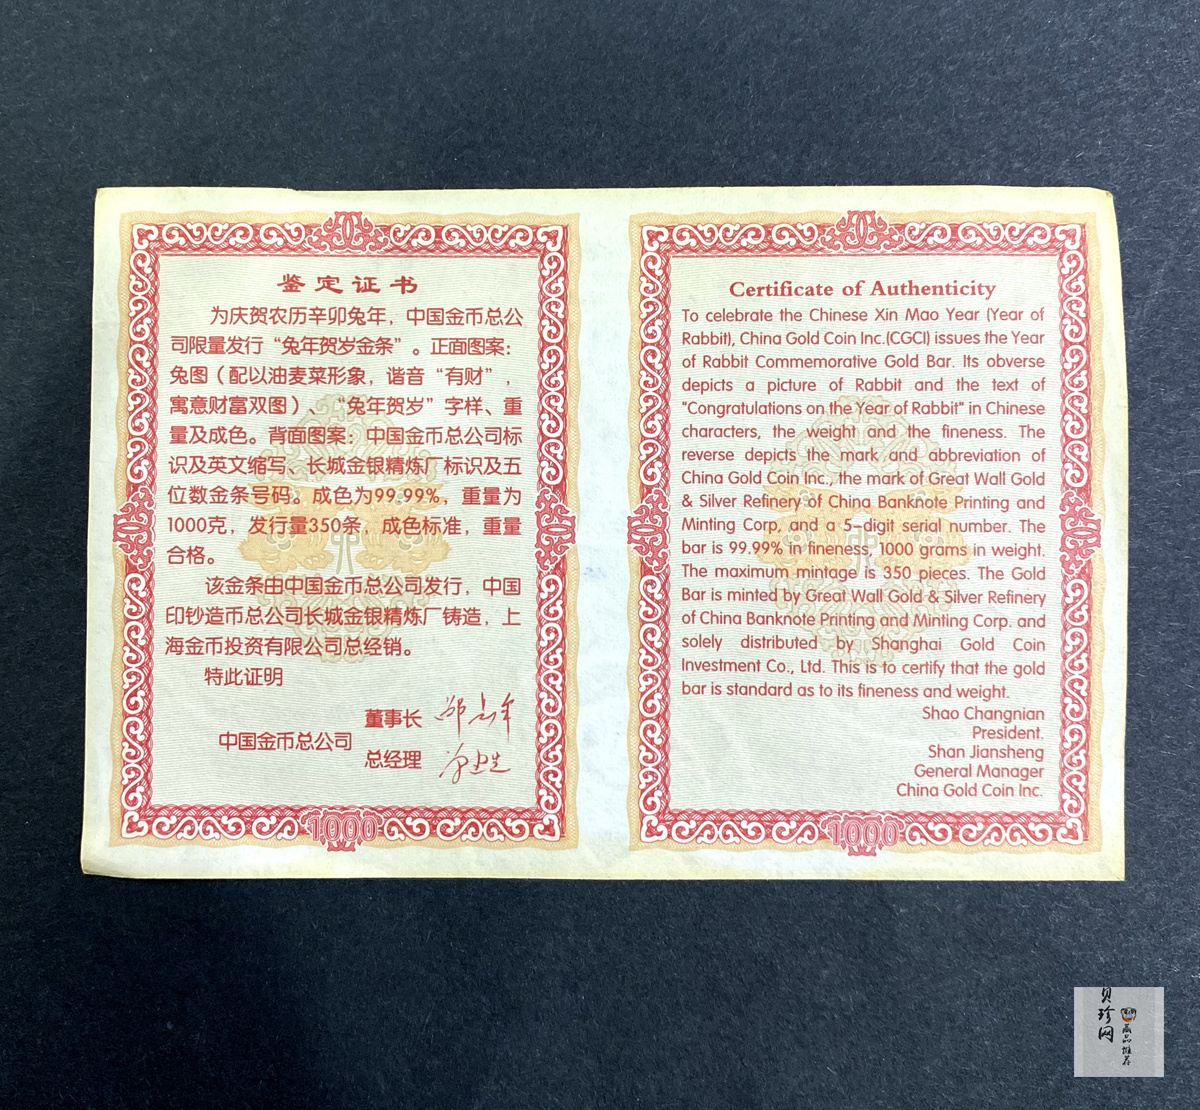 鉴定证书
为庆贺农历辛卯兔年，中国金币总公
司限量发行“兔年贺岁金条”。正面图案：
兔图（配以油麦菜形象，谐音“有财”，
寓意财富双图）、“兔年贺岁”字样、重
量及成色。背面图案：中国金币总公司标
识及英文缩写、长城金银精炼厂标识及五
位数金条号码。成色为99.99%，重量为
1000克，发行量350条，成色标准，重量
合格。
该金条由中国金币总公司发行，中国
印钞造币总公司长城金银精炼厂铸造，上
海金币投资有限公司总经销。
特此证明
董事长
中国金币总公司
总经理
1000
Certificate of Authenticity
To celebrate the Chinese Xin Mao Year (Year of
Rabbit), China Gold Coin Inc.(CGCI) issues the Year
of Rabbit Commemorative Gold Bar. Its obverse
depicts a picture of Rabbit and the text of
"Congratulations on the Year of Rabbit" in Chinese
characters, the weight and the fineness. The
reverse depicts the mark and abbreviation of
China Gold Coin Inc., the mark of Great Wall Gold
& Silver Refinery of China Banknote Printing and
Minting Corp, and a 5-digit serial number. The
bar is 99.99% in fineness, 1000 grams in weight.
The maximum mintage is 350 pieces. The Gold
Bar is minted by Great Wall Gold & Silver Refinery
of China Banknote Printing and Minting Corp. and
solely distributed by Shanghai Gold Coin
Investment Co., Ltd. This is to certify that the gold
bar is standard as to its fineness and weight.
Shao Changnian
President.
Shan Jiansheng
General Manager
China Gold Coin Inc.
1000
贝珍网
藏品推荐